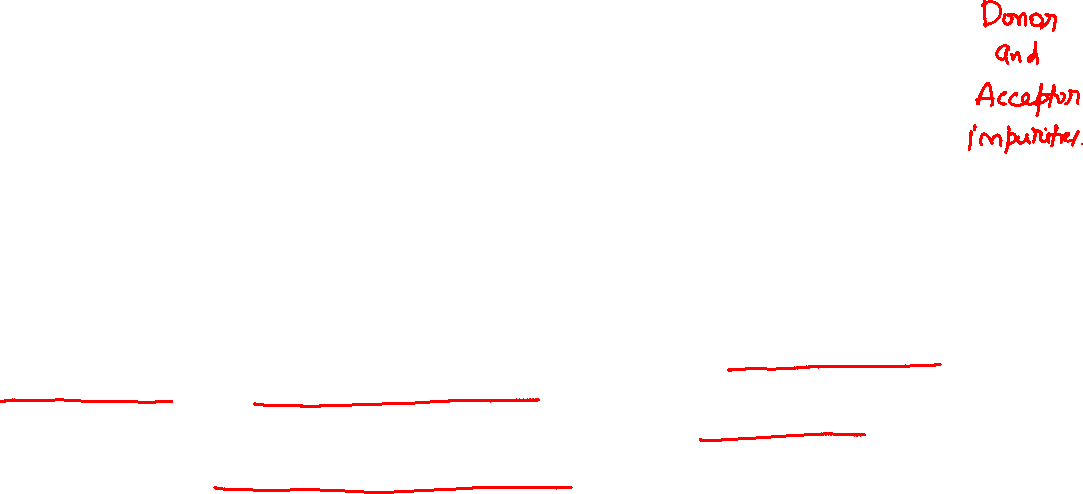 Donor
and
Acceptor
impurities.